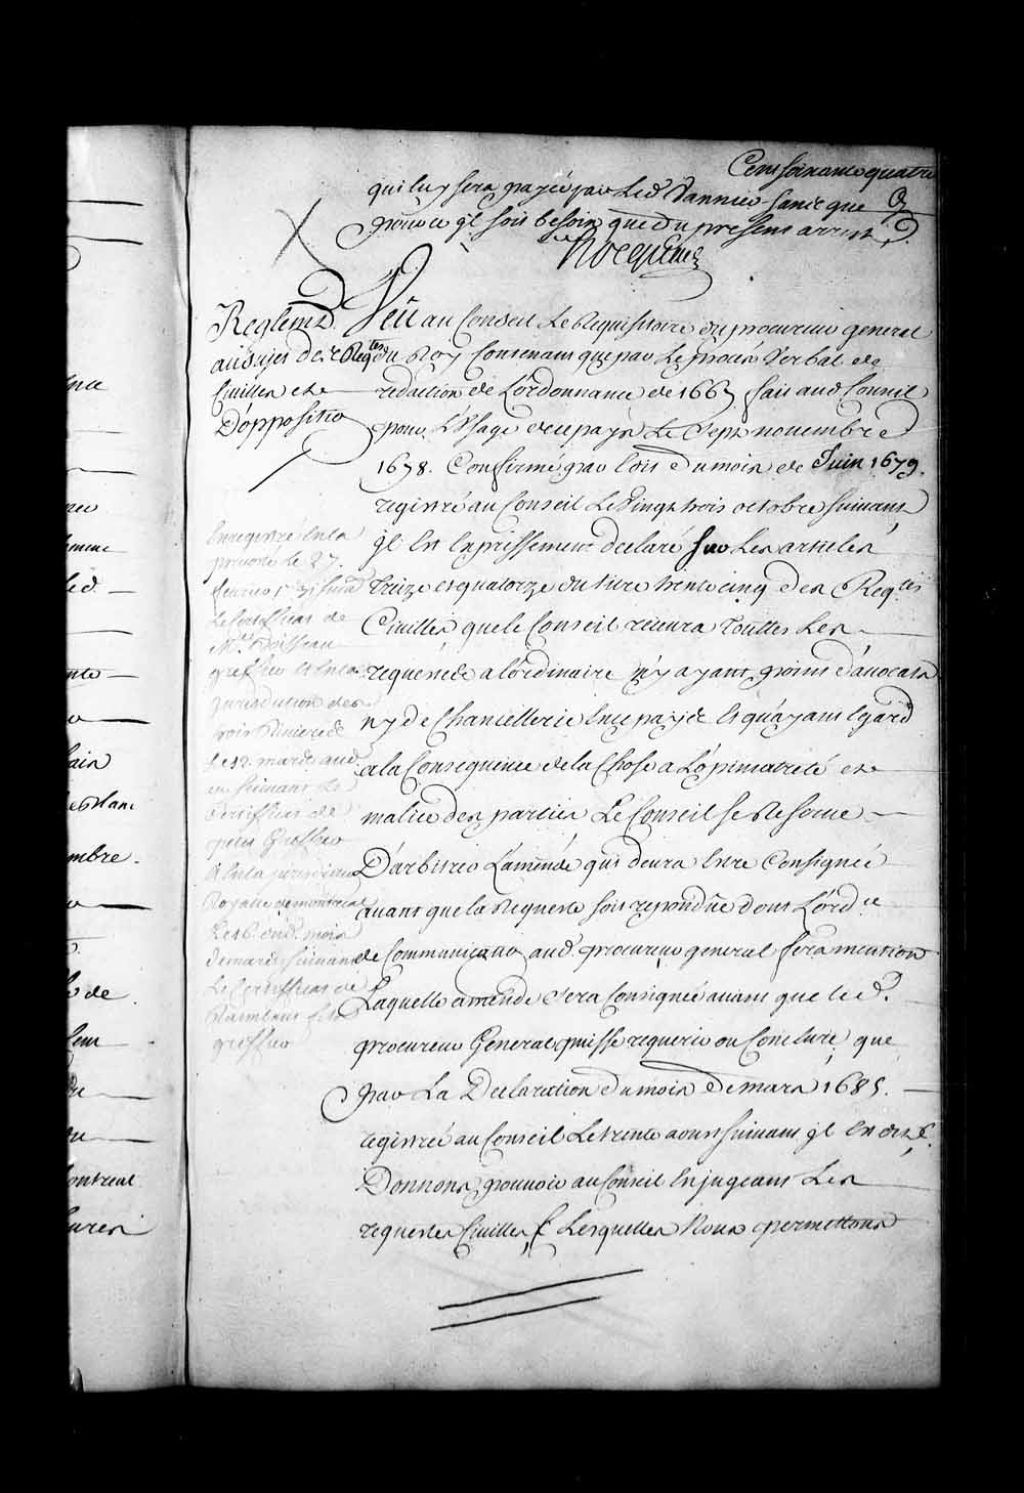 Cent soixante quatre
qui luy sera payée par led Vannier sans que
pour ce il soit besoin que du present arrest
Rocquencs
Reglemt.
au sujet des Reqtes
Civilles et
D'oppositio
Veu au Conseil Le Requisitoire du procureur general
du Roy Contenant que par Le procés Verbal de
redaction de L'ordonnance de 1667 fait aud Conseil
pour L'Usage de ce pays Le Sept novembre
1678. Confirmé par Edit du mois de Juin 1679.
registré au Conseil Le Vingt trois octobre suivant
Il Est Expressement declaré sur Les articles
treize et quatorze du titre trente cinq des Reqtes
Civilles que le Conseil recevra touttes Les
requestes a l'ordinaire n'y ayant point d'avocats
ny de Chancellerie En ce pays et qu'ayant Egard
a la Consequence de la Chose a L'opiniatreté et
malice des parties Le Conseil se Reserve
D'arbitrer L'amende qui devra Estre Consignée
avant que la Requeste soit repondüe dont L'ordce
de Communicatio aud. procureur general fera mention
Laquelle amende sera Consignée avant que led.
procureur General puisse requerir ou Conclure, que
par La Declaration du mois de mars 1685.
registrée au Conseil Le trente aoust suivant il Est dit
Donnons pouvoir au Conseil En jugeant Les
requestes Civilles, Lesquelles Nous permettons
Enregistré En la
prevosté le 27.
fevrier
Le Certifficat de
Mr. Boisseau
greffier et En la
Jurisdiction des
trois Rivieres
Le 12. mars aud
an suivant Le
Certifficat de
petit Greffier
et En la jurisdiction
Royalle de montreal
Le 16. dud. mois
de mars suivant
Le Certifficat de
Raimbault fils
greffier